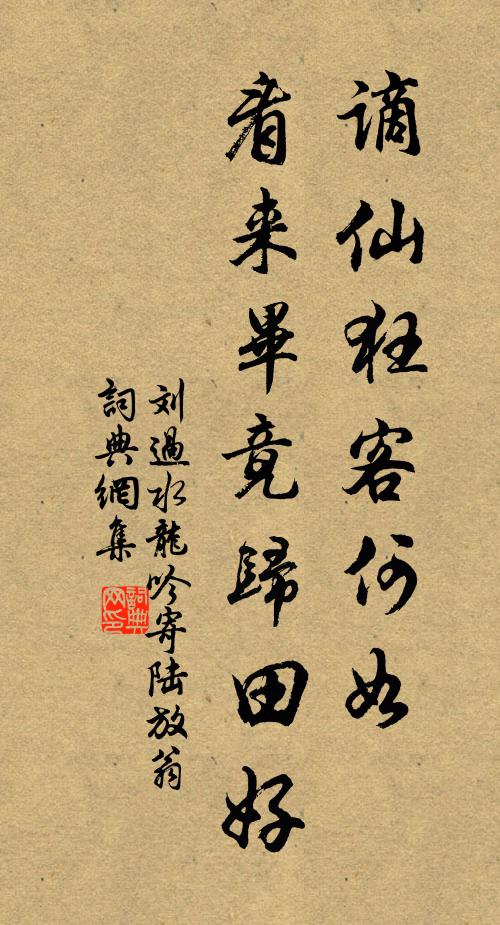 谪仙狂客何如
看来畢竟歸田好
刘過水龍吟寄陆放翁
詞典網集
詞典网印